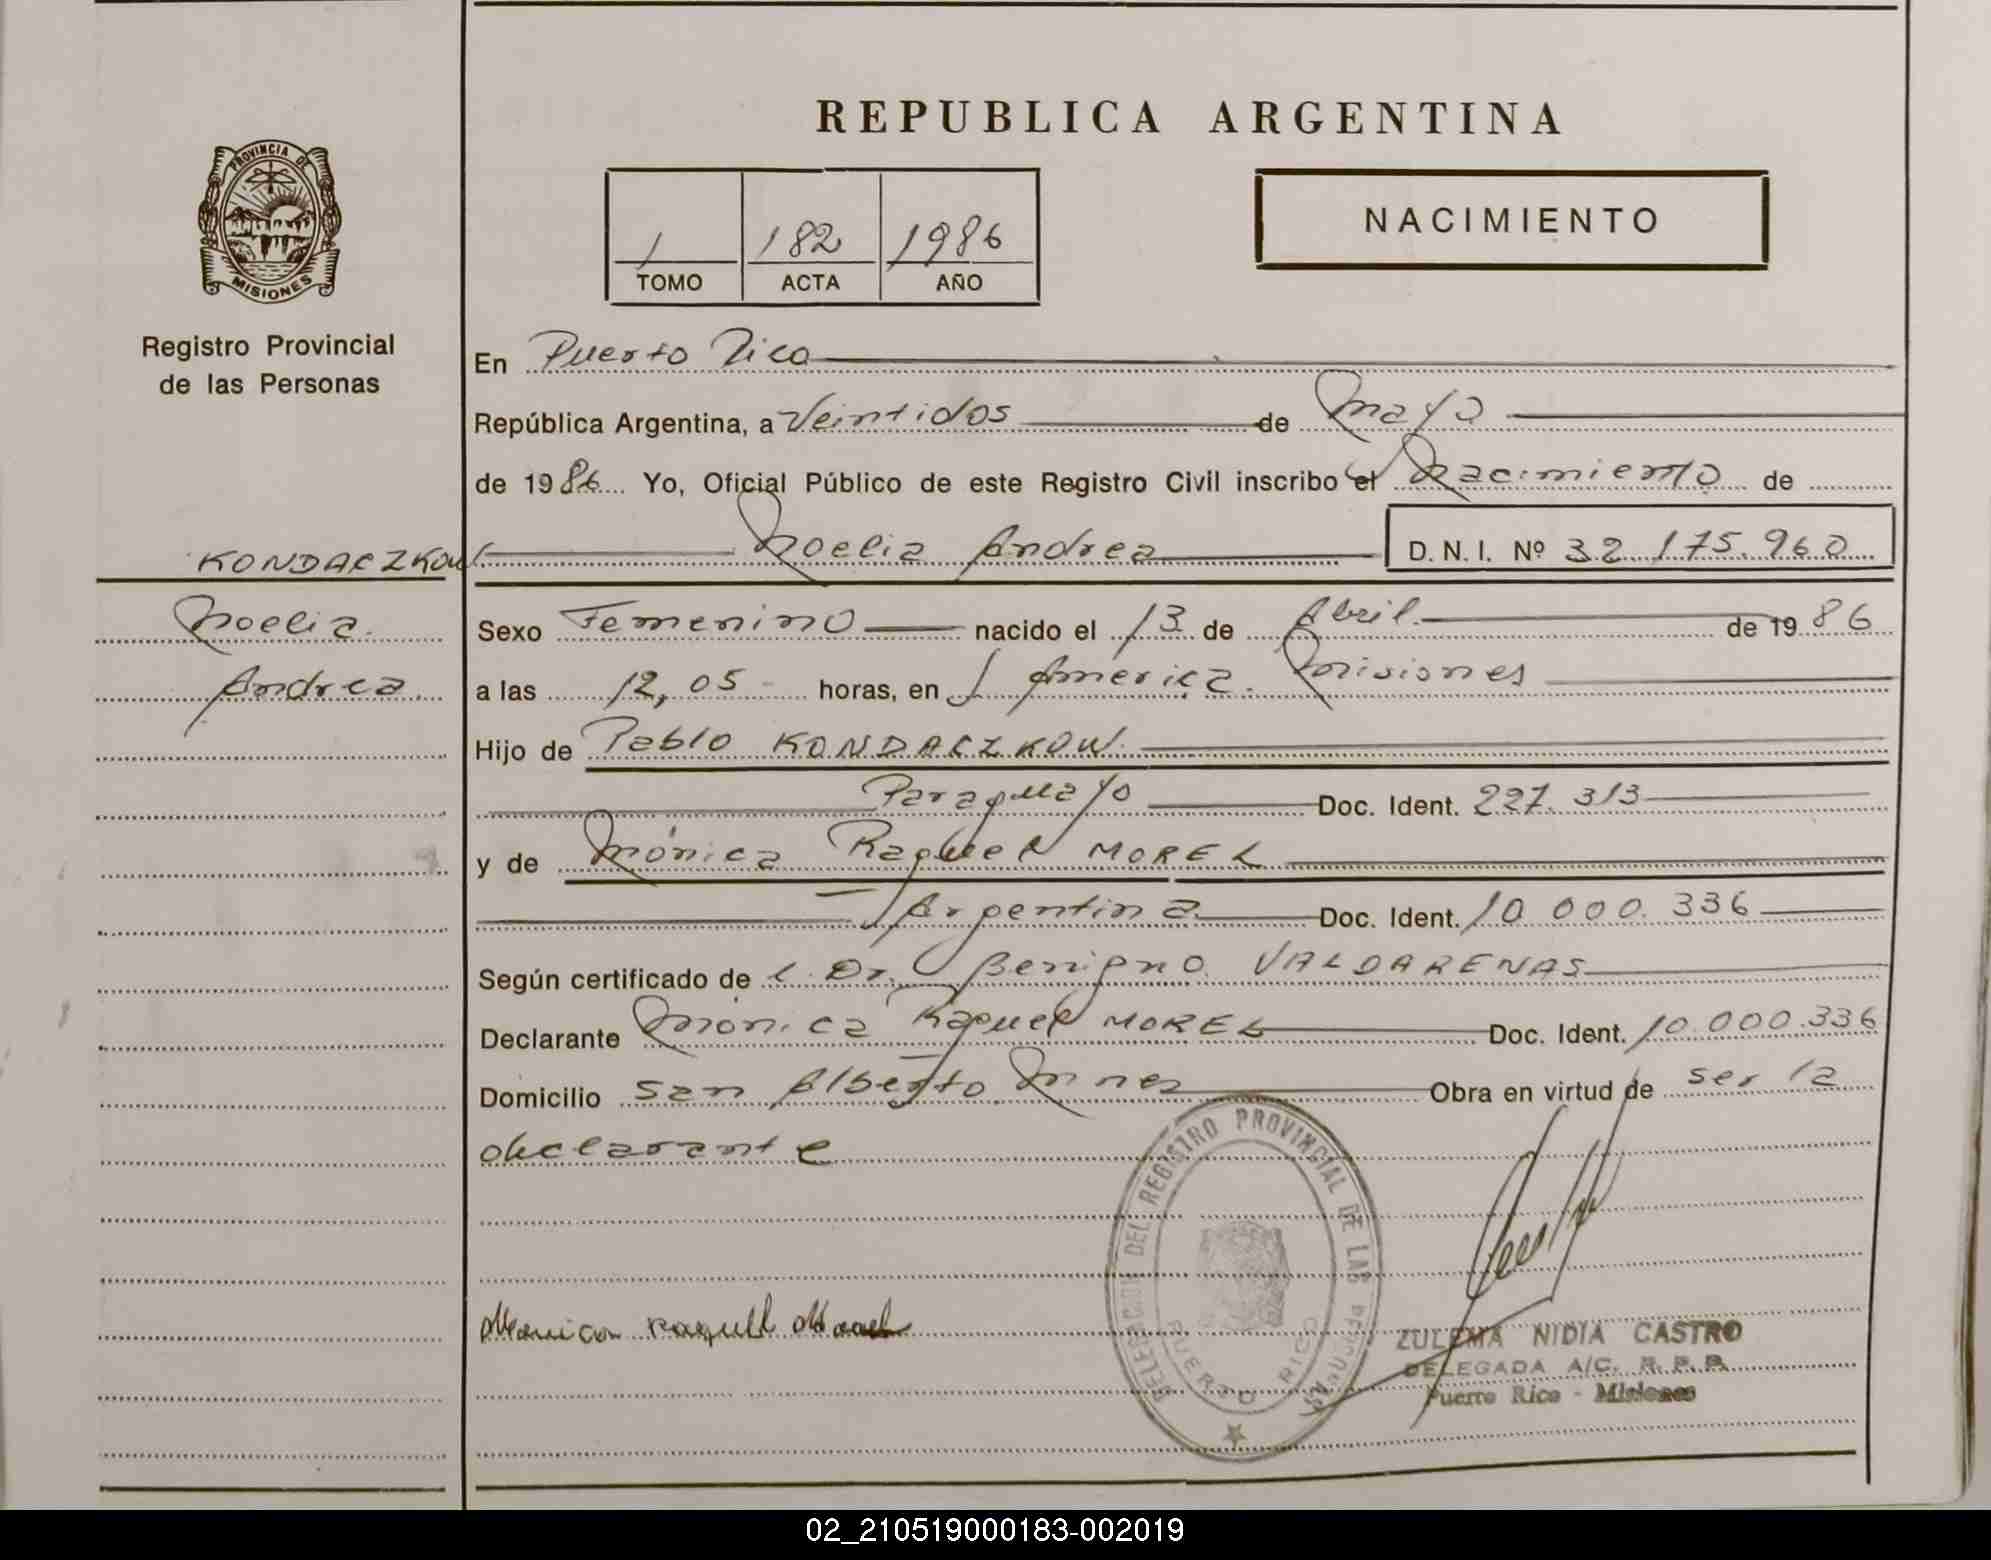 REPUBLICA ARGENTINA
PROVINCIA DE
MISIONES
Registro Provincial
de las Personas
1 182 1986
TOMO ACTA AÑO
NACIMIENTO
En Puerto Rico
República Argentina, a Veintidos de Mayo
de 1986 Yo, Oficial Público de este Registro Civil inscribo el Nacimiento de
KONDACZKOW
Noelia Andrea D. N. I. Nº 32 175.960
Noelia
Andrea
Sexo Femenino nacido el 13 de Abril de 1986
a las 12,05 horas, en J America. Misiones
Hijo de Pablo KONDACZKOW
Paraguayo Doc. Ident. 227.313
y de Mónica Raquel MOREL
Argentina Doc. Ident. 10 000.336
Según certificado de l Dr. Benigno VALDARENAS
Declarante Mónica Raquel MOREL Doc. Ident. 10.000.336
Domicilio San Alberto Mnes Obra en virtud de ser la
declarante
DELEGACION DEL REGISTRO PROVINCIAL DE LAS
PUERTO RICO
Monica Raquel Morel
ZULEMA NIDIA CASTRO
DELEGADA A/C. R. P. P.
Puerto Rico - Misiones
02_210519000183-002019